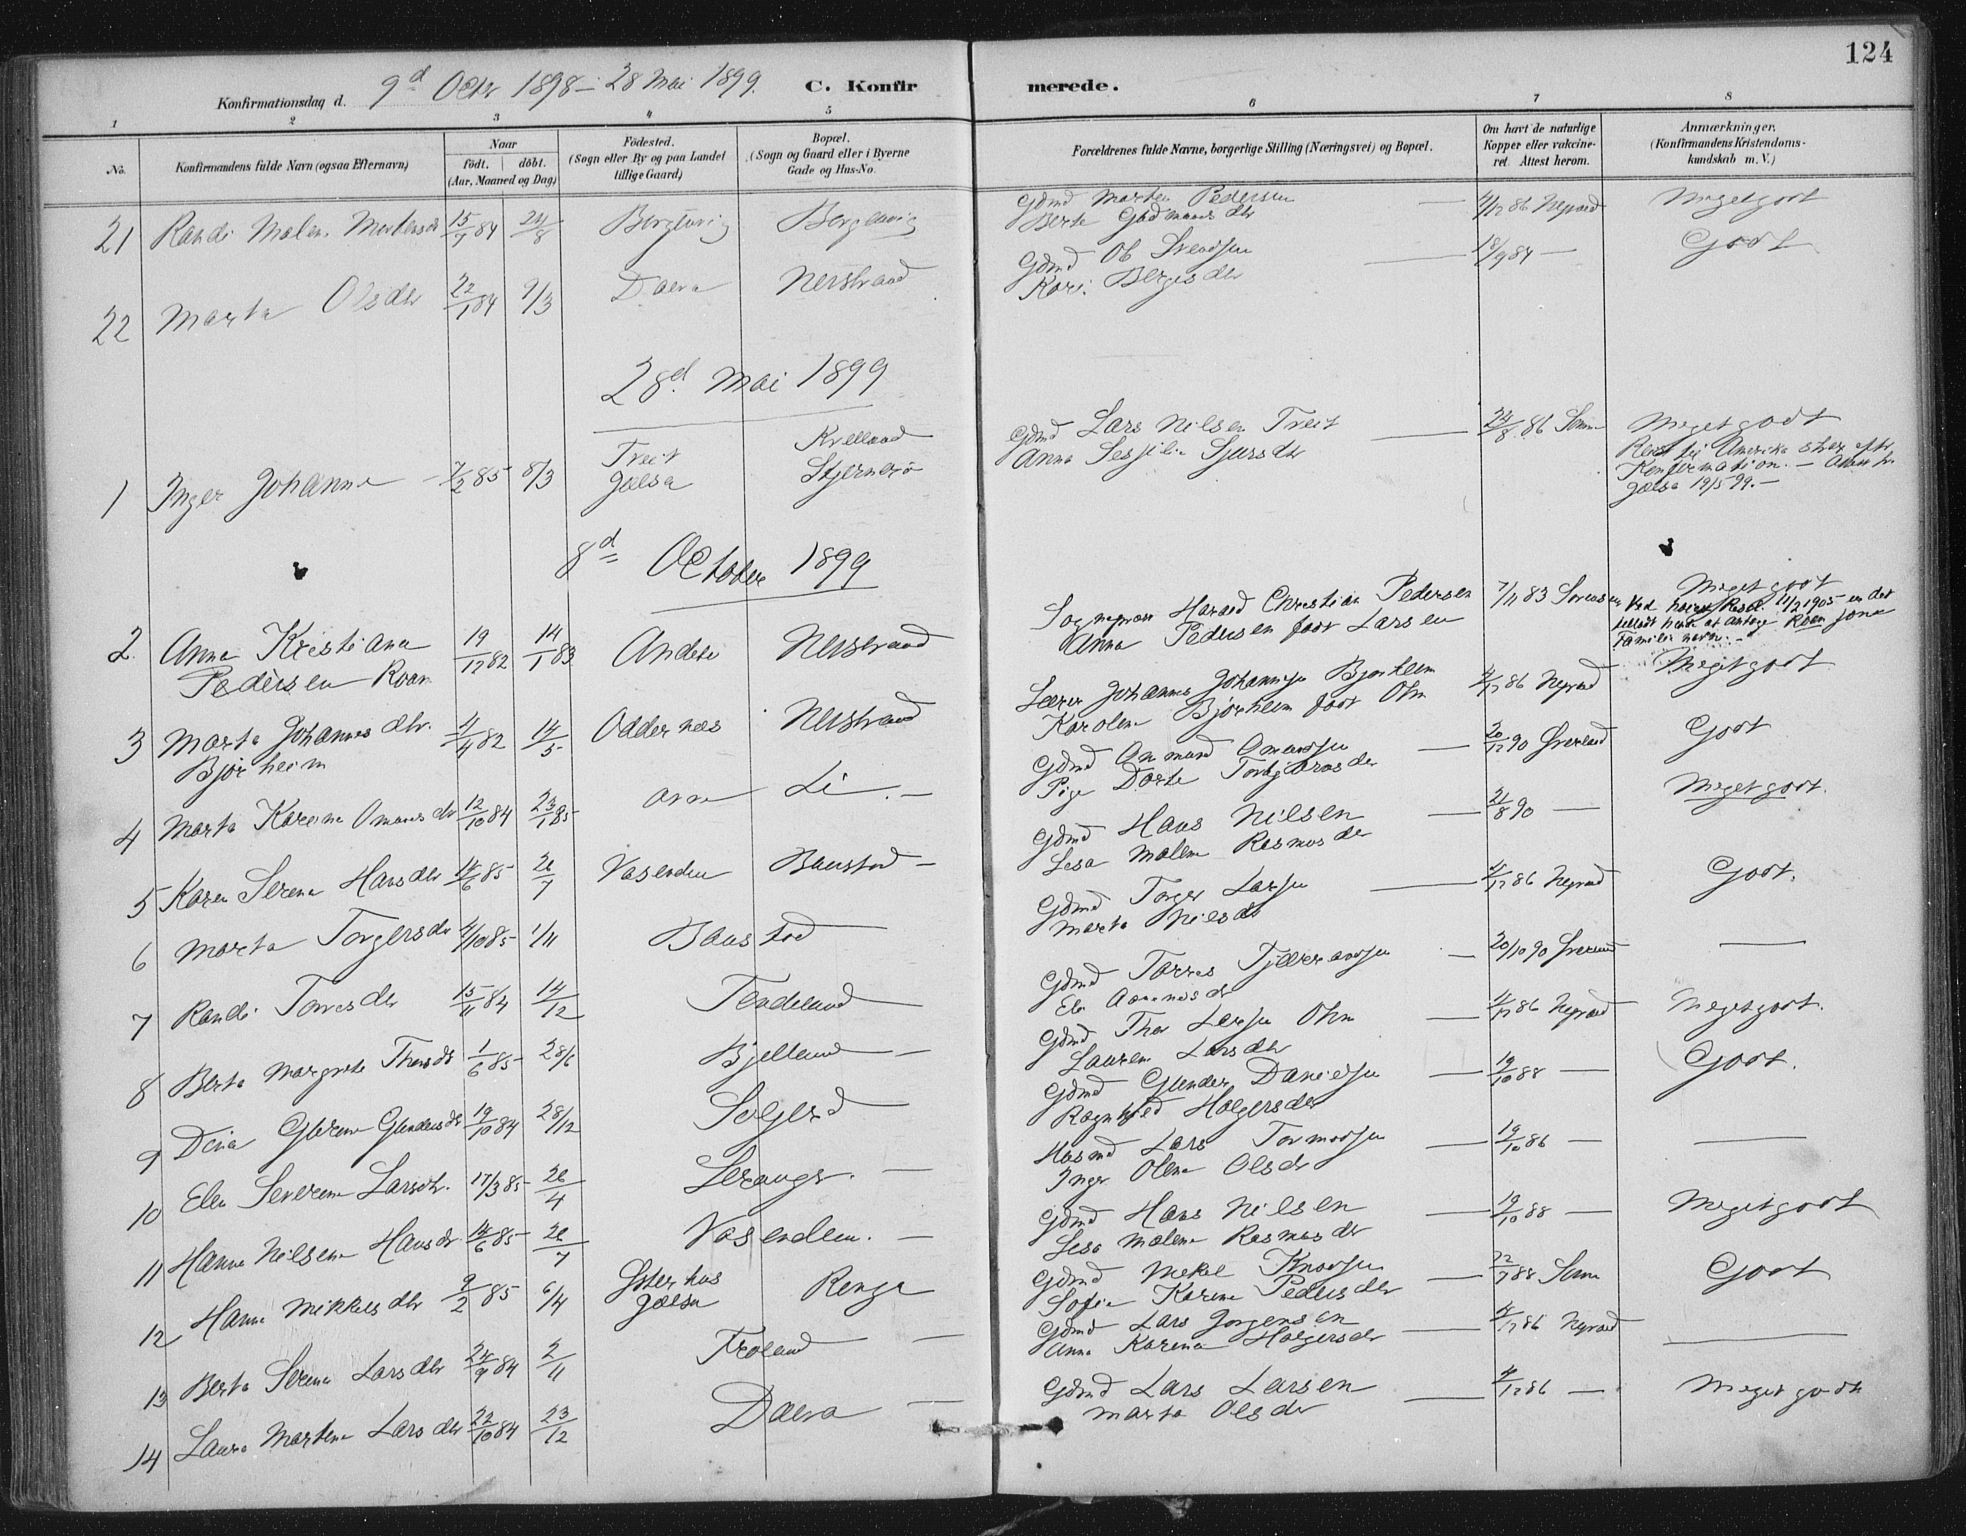 124
Konfirmationsdag d. 9d Octr 1898 - 28 Mai 1899. C. Konfirmerede.
1 2 3 4 5 6 7 8
No. Konfirmandens fulde Navn (ogsaa Efternavn) Naar födt. döbt. (Aar, Maaned og Dag) Födested. (Sogn eller By og paa Landet tillige Gaard) Bopæl. (Sogn og Gaard eller i Byerne Gade og Hus-No. Forældrenes fulde Navne, borgerlige Stilling (Næringsvei) og Bopæl. Om havt de naturlige Kopper eller vakcineret. Attest herom. Anmærkninger. (Konfirmandens Kristendomskundskab m. V.)
21 Randi Malene Mortensdtr 15/7 84 24/8 Bergevig Bergevig Gdmd Morten Pedersen Berte Gudmunsdtr 4/12 86 Nyraad Megetgodt
22 Marta Olsdtr 22/1 84 9/3 Dueva Nerstrand Gdmd Ol Svendsen Kari Bergesdtr 18/9 84 — Godt
28d Mai 1899
1 Inger Johanne 7/2 85 8/3 Treit Jælsa Kvelland Stjernerø Gdmd Lars Nilsen Treit Anna Sesjilie Sjursdtr 24/8 86 Megetgodt
Reist til Amerika strax efter
Konfirmation. —
Jælsa 19/5 99. —
8d October 1899
2 Anna Kristiana Pedersen Roan 19/12 82 14/1 83 Nerstrand Sogneprest Harald Christian Pedersen Anna Pedersen født Larsen 7/11 83 Sorensen Megetgodt
Ved 11/2 1905 er det
tilladt hende at antage Roan som
Familienavn. —
3 Marta Johannesdtr. Bjørheim 4/4 82 14/5 Oddernæs Nerstrand Lærer Johannes Johannesen Bjørheim Karoline Bjørheim født Ohm 4/12 86 Nyraad Megetgodt
4 Marta Karoline Omunsdtr 12/10 84 23/1 85 Li — Gdmd Omund Omundsen Pige Dorte Torbjørnsdtr 20/12 90 Godt
5 Karen Serina Hansdtr 14/6 85 26/7 Vasenden Baustad — Gdmd Hans Nilsen Lesa Malene Rasmusdtr 21/8 90 — Megetgodt.
6 Marta Torgersdtr 4/10 85 1/11 Baustad Gdmd Torger Larsen Marta Nilsdtr 4/12 86 Nyraad Godt.
7 Randi Torresdtr 15/11 84 14/12 Tendeland Gdmd Torres Eli 20/10 90 —
8 Berta Margrete Thorsdtr 1/6 85 28/6 Bjelland — Gdmd Thor Larsen Ohm Laurene Larsdtr 4/12 86 Nyraad Megetgodt.
9 Dina Gurine Gundersdtr 19/10 84 28/12 Solgerd Gdmd Gunder Danielsen Ragnhild Holgersdtr 19/10 88 — Godt.
10 Elen Severine Larsdtr. 17/3 85 26/4 Lerangr. — Husmd Lars Tormodsen Inger Oline Olsdtr 19/10 86 — —
11 Hanna Nilsine Hansdtr 14/6 85 26/7 Vasenden. — Gdmd Hans Nilsen Lesa Malene Rasmusdtr 19/10 88 — Megetgodt
12 Hanna Mikkelsdtr 9/2 85 6/4 Østerhus Jælsa Renge Gdmd Mikel Knudsen Sofie Karine Pedersdtr 22/9 88 Godt
13 Berta Serine Larsdtr 24/9 84 2/11 Frøland — Gdmd Lars Jorgensen Anna Karina Holgersdtr 4/12 86 Nyraad —
14 Laura Martine Larsdtr 22/10 84 23/12 Dueva — Gdmd Lars Larsen Marta Olsdtr 4/12 86 — Megetgodt